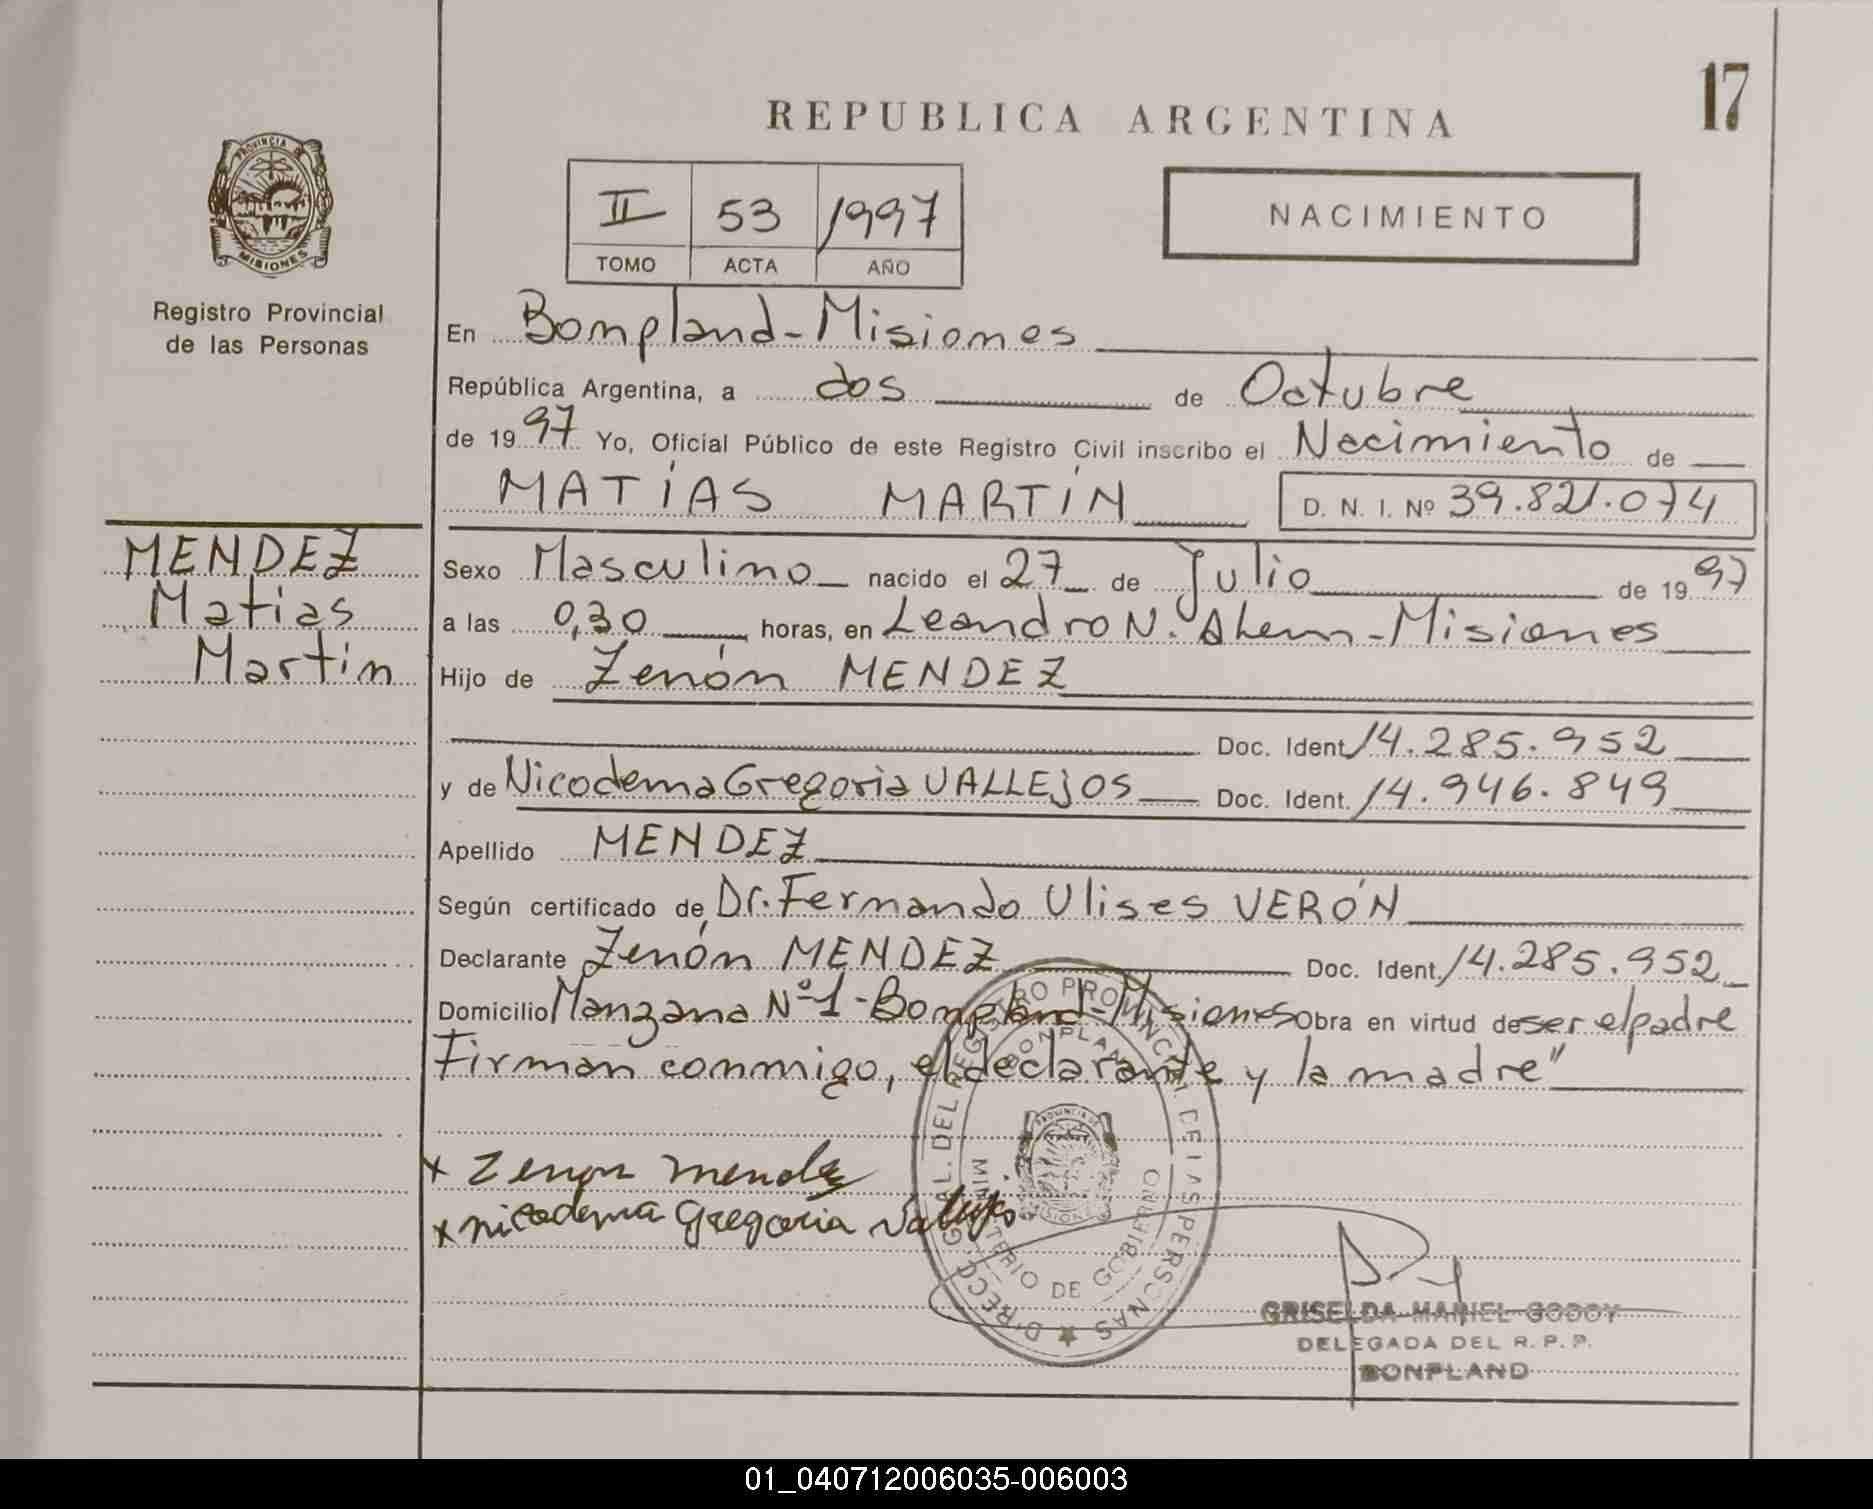 17
REPUBLICA ARGENTINA
PROVINCIA DE
MISIONES
Registro Provincial
de las Personas
II 53 1997
TOMO ACTA AÑO
NACIMIENTO
En Bonpland-Misiones
República Argentina, a dos de Octubre
de 1997 Yo, Oficial Público de este Registro Civil inscribo el Nacimiento de
MATÍAS MARTÍN D. N. I. Nº 39.821.074
MENDEZ
Matías
Martín
Sexo Masculino nacido el 27 de Julio de 1997
a las 0,30 horas, en Leandro N. Alem-Misiones
Hijo de Zenón MENDEZ
Doc. Ident. 14.285.952
y de Nicodema Gregoria VALLEJOS Doc. Ident. 14.946.849
Apellido MENDEZ
Según certificado de Dr. Fernando Ulises VERÓN
Declarante Zenón MENDEZ Doc. Ident. 14.285.952
Domicilio Manzana Nº 1-Bonpland-Misiones Obra en virtud de ser el padre
Firman conmigo, el declarante y la madre"
x Zenon mendez
x nicodema Gregoria Vallejos
DIRECC. GRAL. DEL REGISTRO PROVINCIAL DE LAS PERSONAS
BONPLAND
MINISTERIO DE GOBIERNO
GRISELDA MARIEL GODOY
DELEGADA DEL R.P.P.
BONPLAND
01_040712006035-006003